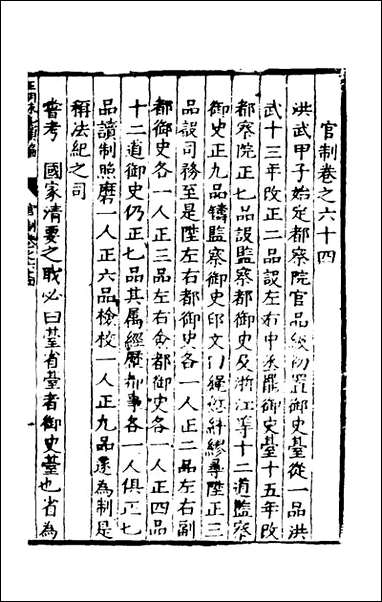 官制卷之六十四
洪武甲子始定都察院官品級初置御史臺從一品洪
武十三年改正二品設左右中丞罷御史臺十五年改
都察院正七品設監察都御史及浙江等十二道監察
御史正九品鑄監察御史印文曰繩愆糾繆尋陞正三
品設司務至是陞左右都御史各一人正二品左右副
都御史各一人正三品左右僉都御史各一人正四品
十二道御史仍正七品其属經歷知事各一人俱正七
品讀制照磨一人正六品檢校一人正九品遂為制是
稱法紀之司
嘗考　國家清要之職必曰臺省臺者御史臺也省為
官制卷之六十四